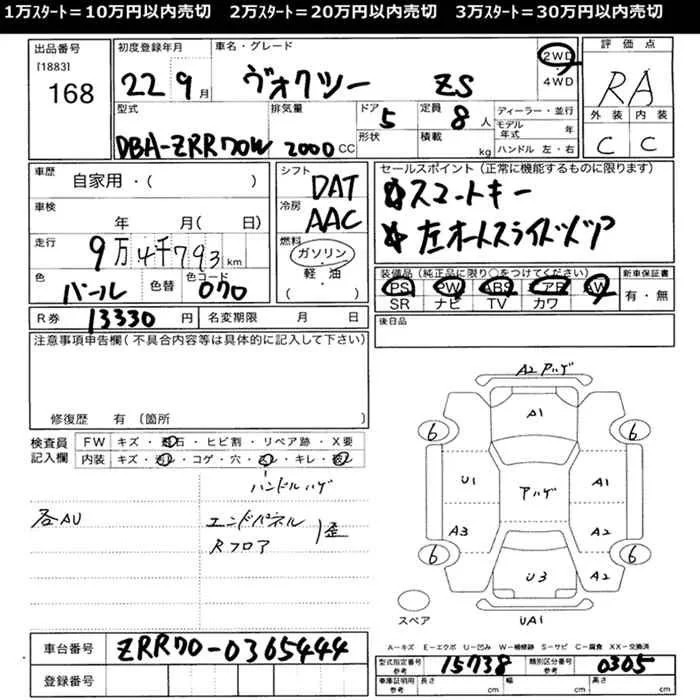 1万スタート=10万円以内売切　2万スタート=20万円以内売切　3万スタート=30万円以内売切
出品番号
[1883]
168
初度登録年月
22 9月
車名・グレード
ヴォクシー ZS
2WD
4WD
評価点
RA
外装 内装
C C
型式
DBA-ZRR70W
排気量
2000 CC
ドア
5
形状
定員
8人
積載 kg
ディーラー・並行
モデル年式 年
ハンドル 左・右
車歴
自家用・( )
車検
年 月( 日)
走行
9万4千793km
色
パール
色替
色コード
070
シフト
DAT
冷房
AAC
燃料
ガソリン
軽・油
( )
セールスポイント(正常に機能するものに限ります)
スマートキー
左オートスライドドア
装備品(純正品に限り○をつけてください)
PS PW ABS エアB AW
SR ナビ TV カワ
新車保証書
有・無
R券 13330 円
名変期限 月 日
後日品
注意事項申告欄(不具合内容等は具体的に記入して下さい)
修復歴 有(箇所 )
検査員
記入欄
FW キズ・飛石・ヒビ割・リペア跡・X要
内装 キズ・汚レ・コゲ・穴・スレ・キレ・破レ
ハンドルハゲ
各AU
エンドパネル
Rフロア
歪
A2アハゲ
A1
6 6
U1 アハゲ A1
A3 A2
6 6
U3 A2
スペア
UA1
A-キズ E-エクボ U-凹み W-補修跡 S-サビ C-腐食 XX-交換済
車台番号 ZRR70-0365444
登録番号
型式指定番号
参考
15738
類別区分番号
参考
0305
車庫証明用
参考
長さ cm 幅 cm 高さ cm